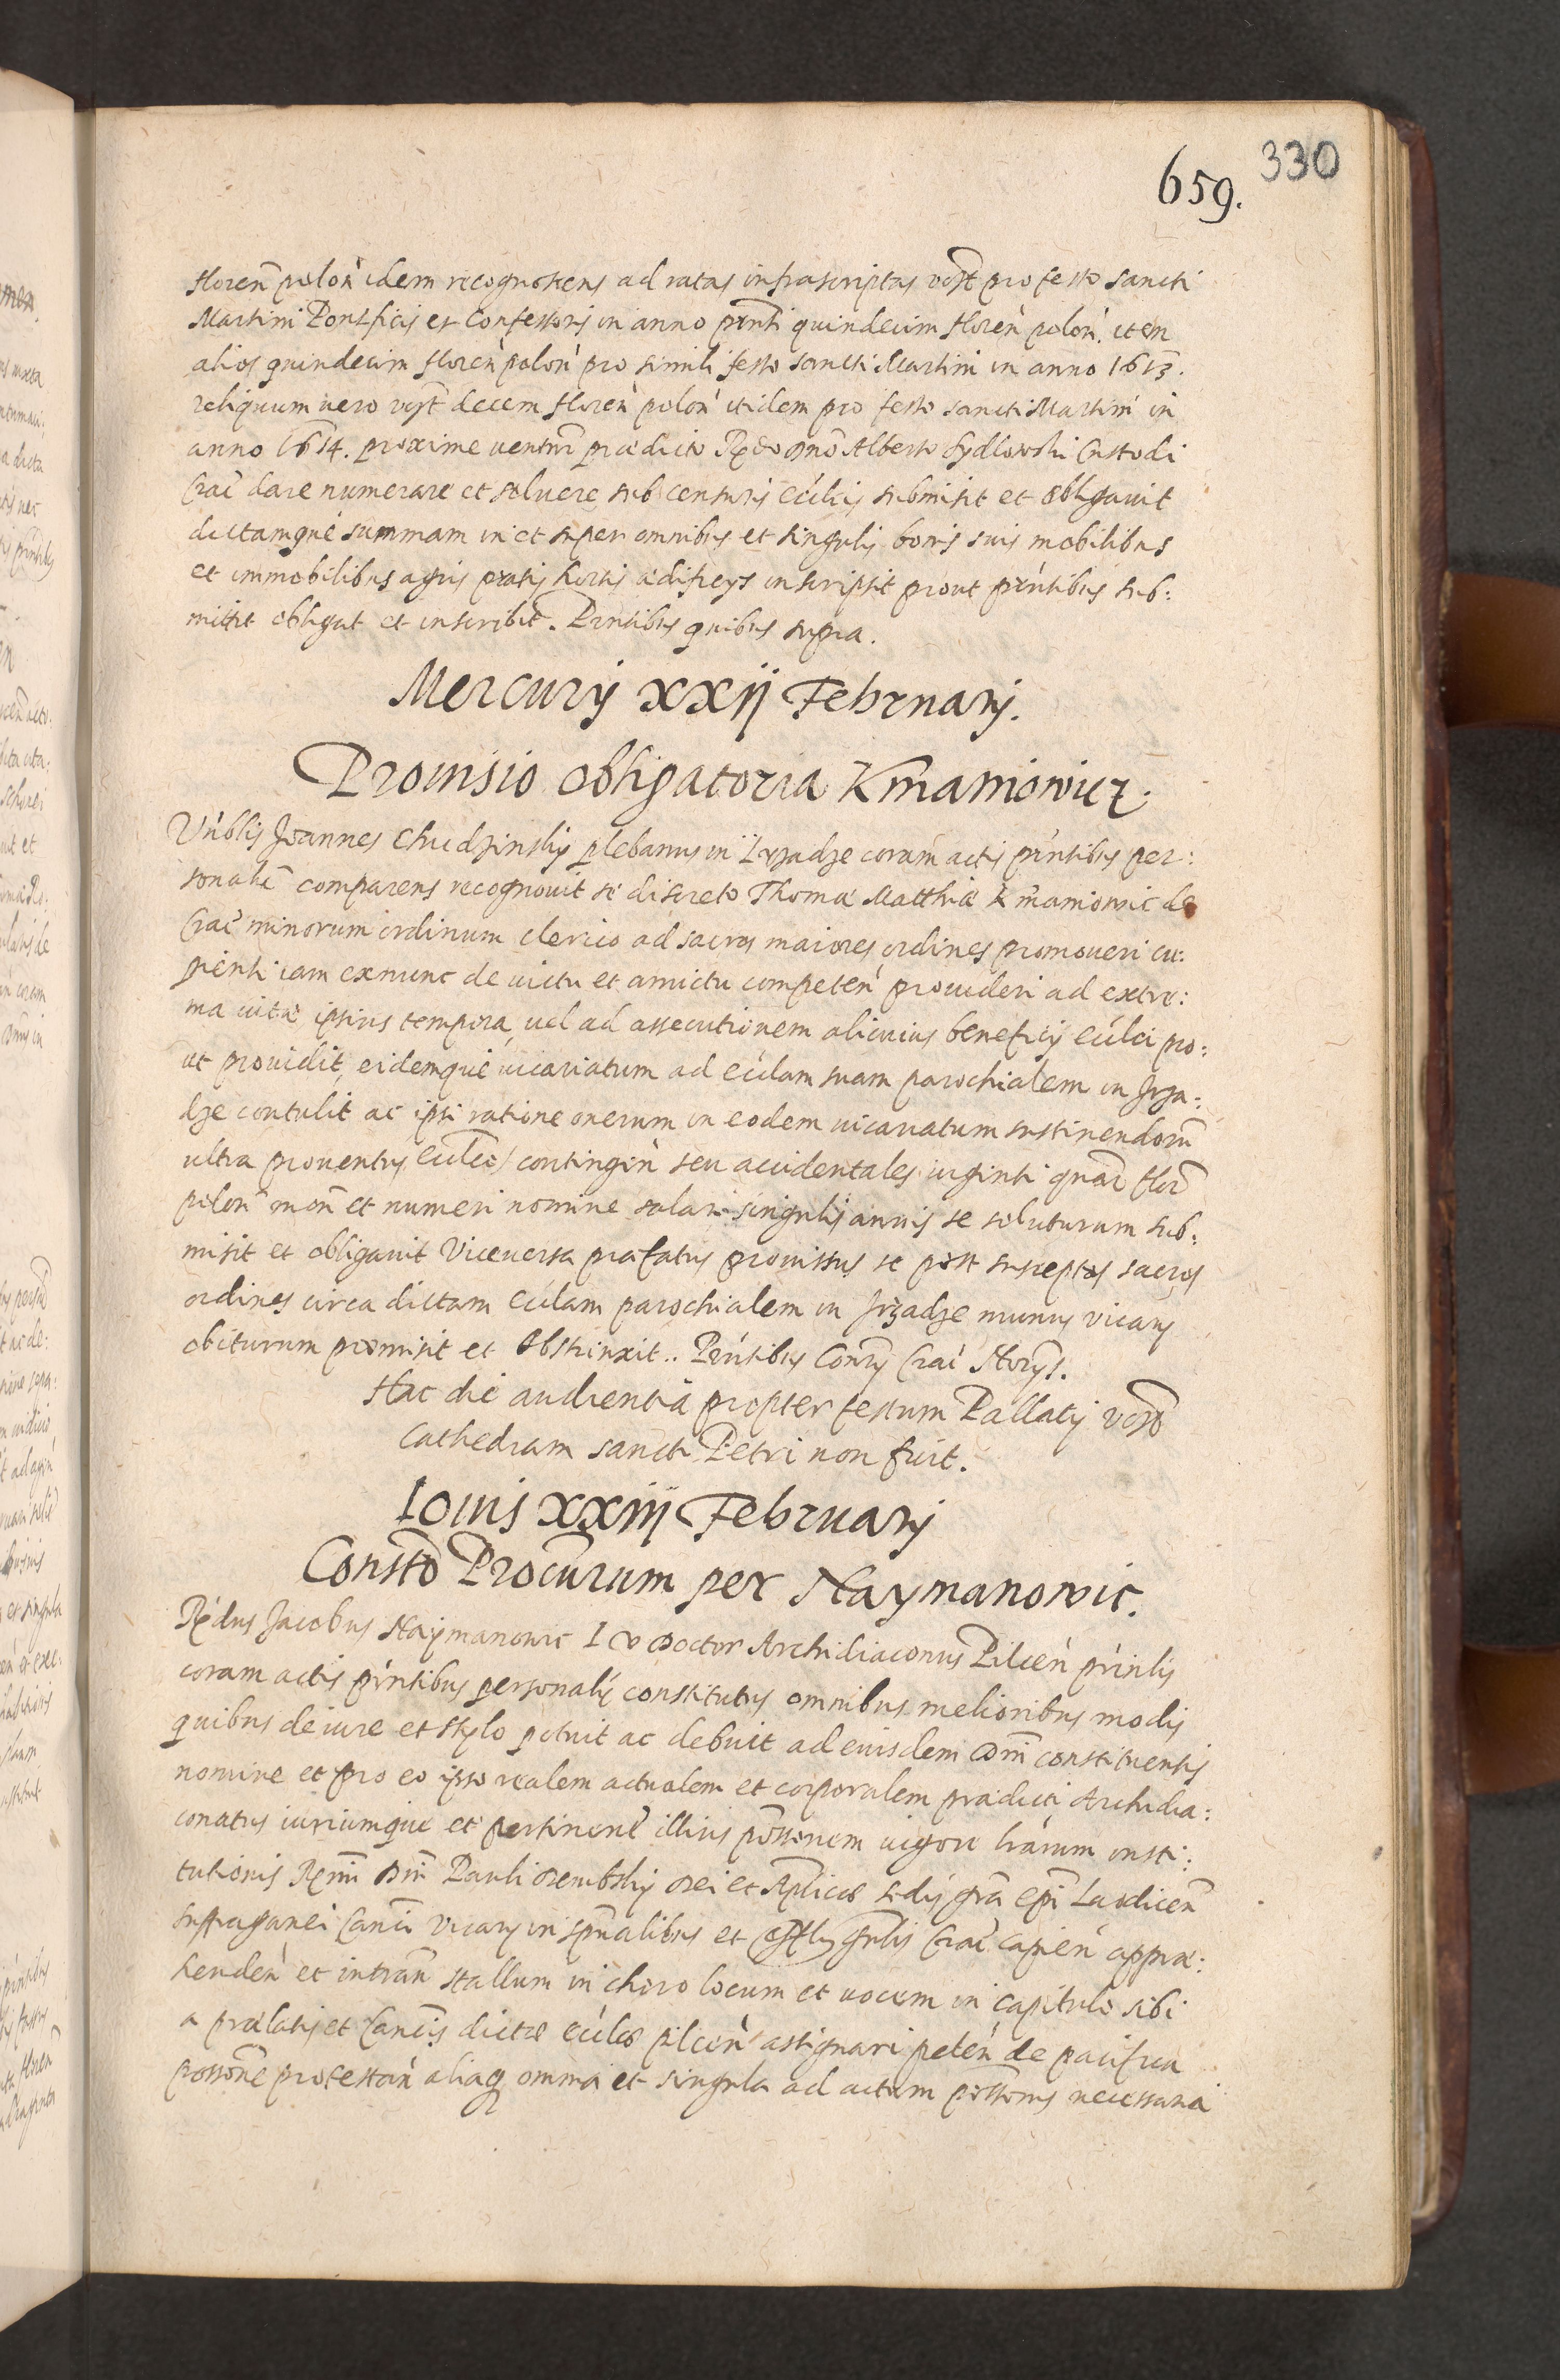 659. 330
floren̄ polon̄ idem recognoscens ad ratas infrascriptas videlt pro festo sancti
Martini Pontificis et Confessoris in anno prn̄ti quindecim floren̄ polon̄. item
alios quindecim floren̄ polon̄ pro simili festo sancti Martini in anno 1613.
reliquum uero decem floren̄ polon̄ itidem pro festo sancti Martini in
anno 1614. proxime uenturi prædicto Rn̄do Dn̄o Alberto Sydlowski Custodi
Crac̄ dare numerare et soluere sub censuris eccl̄cis submisit et obligauit
dictamque summam in et super omnibus et singulis bonis suis mobilibus
et immobilibus agris pratis hortis ædificÿs inscripsit prout prn̄tibus sub:
mittit obligat et inscribit. Prn̄tibus quibus supra.
Mercurÿ xxij Februarij.
Prouisio obligatoria Kmanowicz.
Vn̄blis Joannes Chudzinskÿ plebanus in Irządze coram actis prn̄tibus per:
sonal̄r comparens recognouit se discreto Thomæ Matthiæ Kmaniowic de
Crac̄ minorum ordinum clerico ad sacros maiores ordines promoueri cu:
pienti iam exnunc de uictu et amictu competen̄ prouideri ad extre:
ma uitæ ipsius tempora uel ad assecutionem alicuius beneficij eccl̄ci pro:
ut prouidit, eidemque uicariatum ad eccl̄am suam parochialem in Jrzą:
dze contulit ac ipsi ratione onerum in eodem uicariatum sustinendorū
ultra prouentus contingen̄ seu accidentales uiginti quat̄ flor̄
polon̄ mon̄ et numeri nomine salarij singulis annis se soluturum sub:
misit et obligauit Viceuersa præfatus prouissus se post susceptos sacros
ordines circa dictam eccl̄am parochialem in Jrządze munus vicarij
obiturum promisit et obstrinxit.. Prn̄tibus Cons̄rij Crac̄ Notarijs.
Hac die audientia propter festum Pallatij
Cathedram sancti Petri non fuit.
Iouis xxiij Februarij
Constō Procurum per Naymanowic.
Rn̄dus Jacobus Naymanowic I V Doctor Archidiaconus Pilcen̄ prin̄lis
coram actis prn̄tibus personal̄r constitutus omnibus melioribus modis
quibus de iure et stylo potuit ac debuit ad eiusdem Dn̄i constituentis
nomine et pro eo ipso realem actualem et corporalem prædicti Archidia:
conatus iuriumque et pertinen̄ illius possn̄em uigore l̄rarum insti:
tutionis Rn̄mi Dn̄i Pauli Dembskÿ Dei et Aplicæ Sedis grā Ep̄i Laodicen̄
suffraganei Can̄ci Vicarij in spūalibus et Offlis gn̄lis Crac̄ capien̄ appræ:
henden̄ et intran̄ stallum in choro locum et uocem in capitulo sibi
a prælatis et Can̄cis dictæ eccl̄æ pilcen̄ assignari peten̄ de pacifica
possn̄e protestan̄ aliaq omnia et singula ad actum possn̄is necessaria